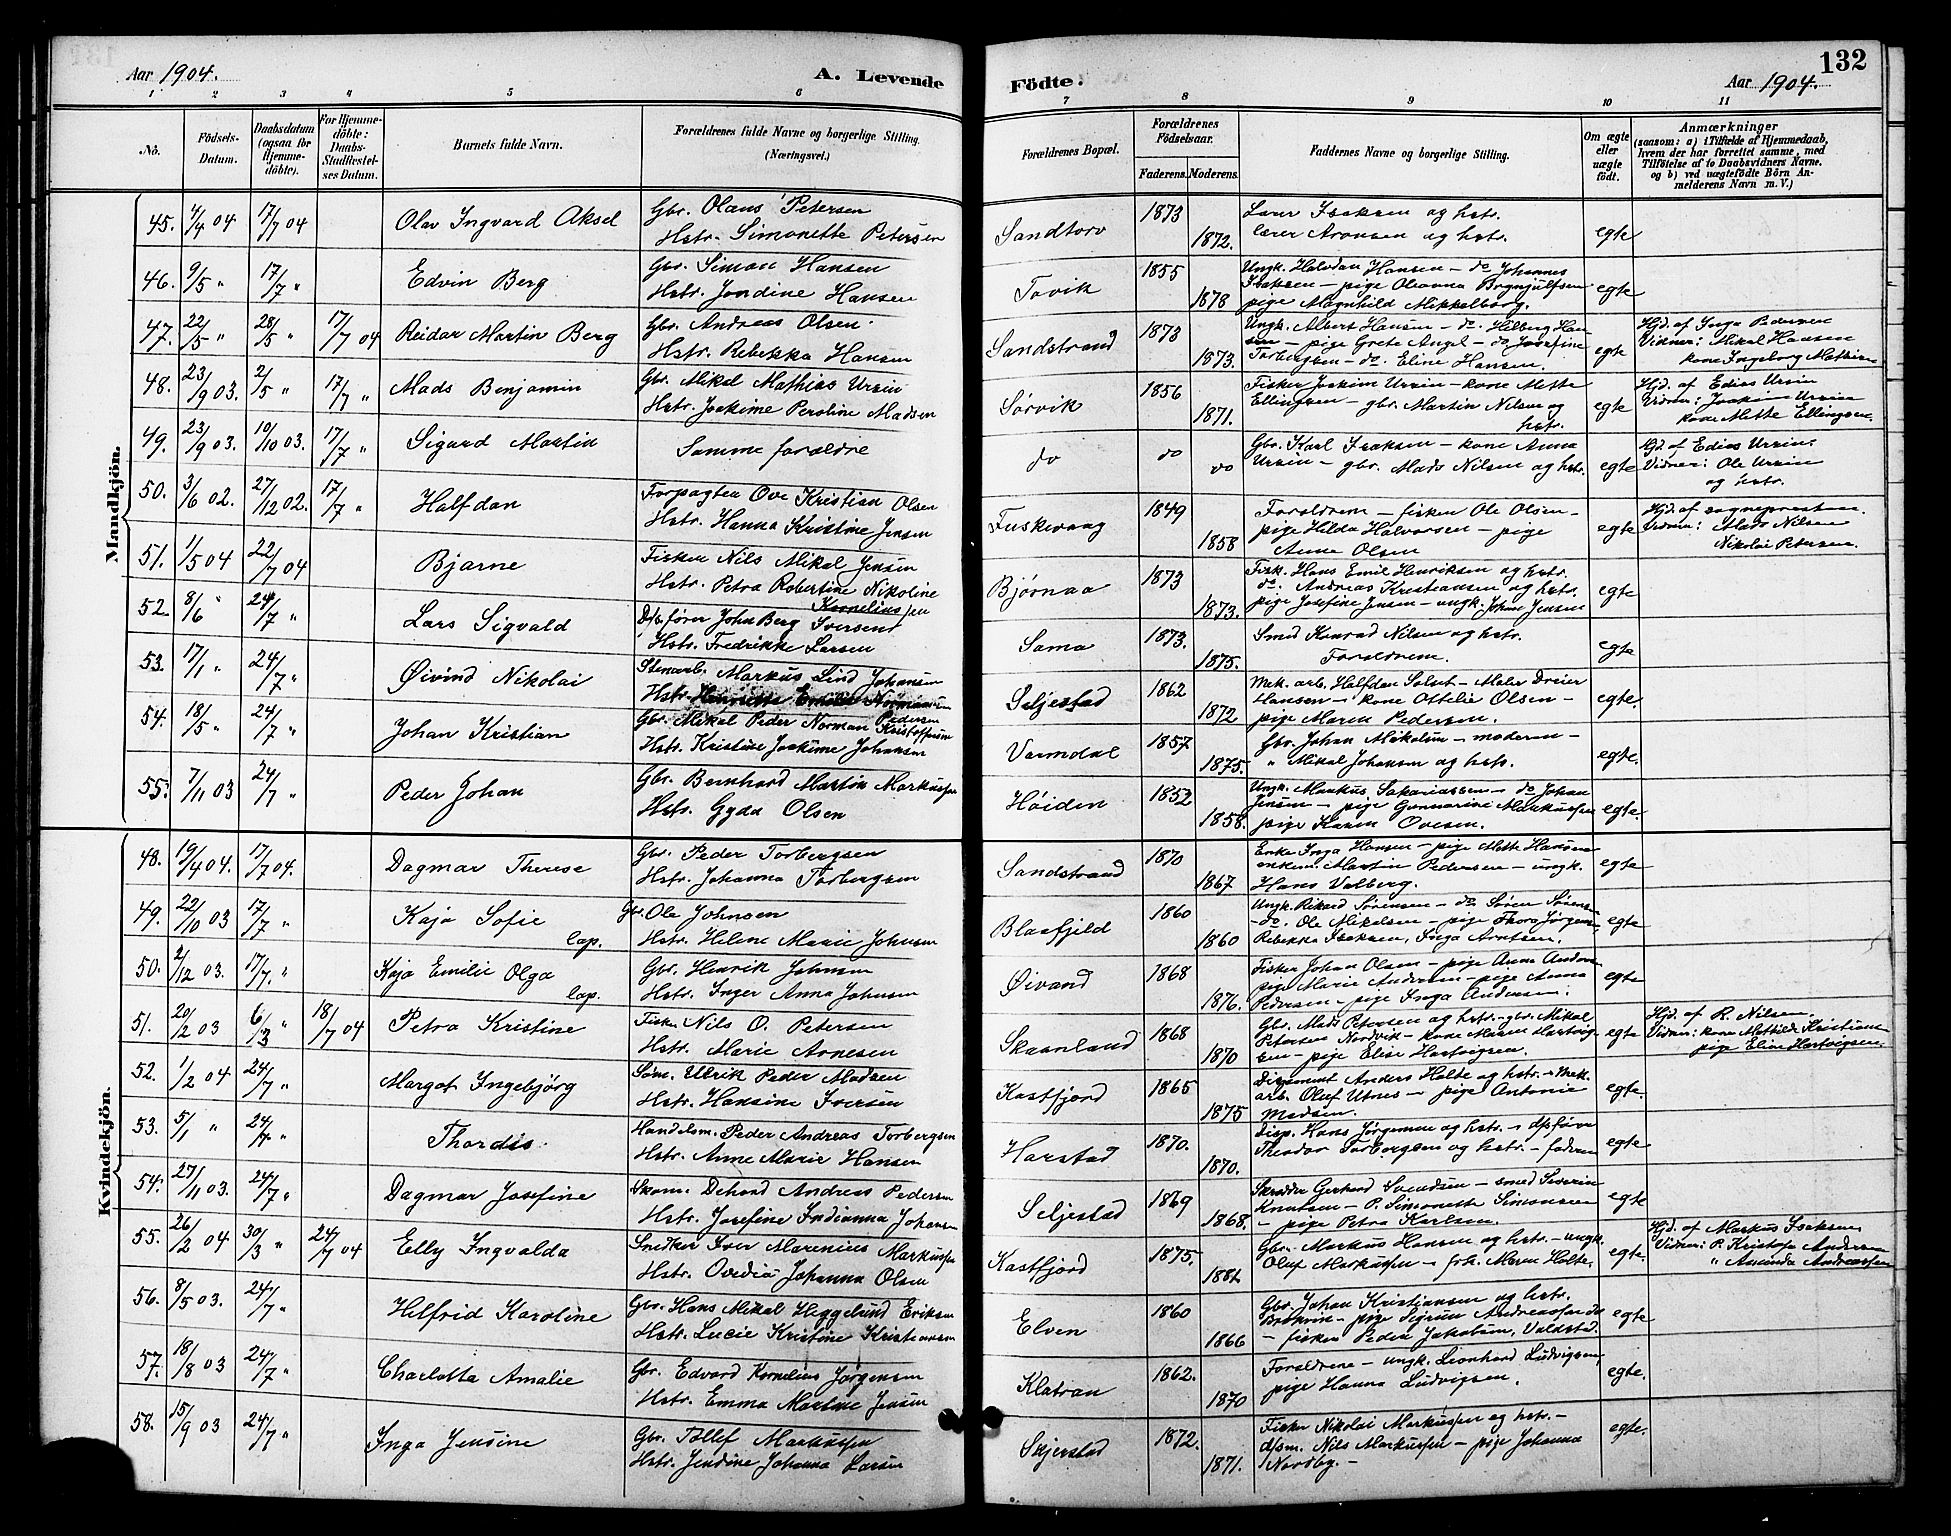 Aar 1904.
A. Levende
Födte.
Aar 1904.
132
1 2 3 4 5 6 7 8 9 10 11
No.
Födsels-
Datum.
Daabsdatum
(ogsaa for
Hjemme-
döbte).
For Hjemme-
döbte:
Daabs-
Stadfæstel-
ses Datum.
Barnets fulde Navn.
Forældrenes fulde Navne og borgerlige Stilling.
(Næringsvei.)
Forældrenes Bopæl.
Forældrenes
Födselsaar.
Faderens. Moderens.
Faddernes Navne og borgerlige Stilling.
Om ægte
eller
uægte
født.
Anmærkninger
(saasom: a) i Tilfælde af Hjemmedaab,
hvem der har forrettet samme, med
Tilföielse af to Daabsvidners Navne.
og b) ved uægtefödte Börn An-
melderens Navn m. V.)
Mandkjön.
45. 4/4 04 17/7 04 Olav Ingvard Aksel Gbr. Olaus Petersen
Hstr. Simonette Petersen
Sandtorv 1873 1872. Lærer Isaksen og hstr.
lærer Aronsen og hstr. egte
46. 9/5 " 17/7 " Edvin Berg Gbr. Simon Hansen
Hstr. Jondine Hansen
Tovik 1855 1878 Ungk. Halvdan Hansen – do Johannes
Isaksen – pige Oleanna Brynjulfsen
pige Magnhild Mikkelborg. egte
47. 22/5 " 28/5 " 17/7 04 Reidar Martin Berg Gbr. Andreas Olsen.
Hstr. Rebekka Hansen
Sandstrand 1873 1873. Ungk. Albert Hansen – do. Hilberg Han
sen – pige Grete Angel – do Josefine
Torbergsen – do. Eline Hansen. egte
Hjd. af Inga Pedersen
Vidner: Mikal Hansen
kone Ingeborg Mathisen
48. 23/9 03. 2/5 " 17/7 " Mads Benjamin Gbr. Mikal Mathias Ursin
Hstr. Joakime Peroline Madsen
Sørvik 1856 1871. Fisker Joakim Ursin – kone Mette
Ellingsen – gbr. Martin Nilsen og
hstr. egte
Hjd. af Edias Ursin
Vidner: Joakim Ursin
kone Mette Ellingsen.
49. 23/9 03. 10/10 03. 17/7 " Sigurd Martin Samme forældre
do do do Gbr. Karl Isaksen – kone Anna
Ursin – gbr. Mads Nilsen og hstr. egte
Hjd. af Edias Ursin.
Vidner: Ole Ursin
og hstr.
50. 3/6 02. 27/12 02. 17/7 " Halfdan Forpagter Ove Kristian Olsen
Hstr. Hanna Kristine Jensen
Fuskevaag 1849 1858 Forældrene – fisker Ole Olsen –
pige Hilda Halvorsen – pige
Anna Olsen egte
Hjd. af sogneprest
Vidner: Mads Nilsen
Nikolai Petersen.
51. 1/5 04 22/7 04 Bjarne Fisker Nils Mikal Jensen
Hstr. Petra Robertine Nikoline
Kornelius
Bjørnaa 1873 1873. Fisk. Hans Emil Henriksen og hstr.
do. Andreas Kristiansen og hstr.
pige Josefine Jensen – ungk. Johan Jensen egte
52. 8/6 " 24/7 " Lars Sigvald Dsbfører John Berg Iversen
Hstr. Fredrikke Larsen
Sama 1873. 1875. Smed Konrad Nilsen og hstr.
Forældrene. egte
53. 17/1 " 24/7 " Øivind Nikolai Stenarb. Markus Lind Johansen
Hstr. Henriette Emilie Normansen
Seljestad 1862 1872 Mek. arb. Halfdan Solset – Maler Dreier
Hansen – kone Ottelie Olsen –
pige Maren Pedersen. egte
54. 18/5 " 24/7 " Johan Kristian Gbr. Mikal Peder Norman Pedersen
Kristoffersen
Hstr. Kristine Joakime Johansen
Varmdal 1857 1875. Gbr. Johan Mikalsen – moderen –
" Mikal Johansen og hstr. egte.
55. 7/11 03 24/7 " Peder Johan Gbr. Bernhard Martin Markussen
Hstr. Gyda Olsen
Høiden 1852 1858. Ungk. Markus Sakariassen – do Johan
Jensen – pige Gunnarine Markussen
pige Karen Ovesen. egte.
Kvindekjön.
48. 19/4 04. 17/7 04. Dagmar Therese Gbr. Peder Torbergsen
Hstr. Johanna Torbergsen
Sandstrand 1870 1867 Enke Inga Hansen – pige Meth Hansen
enkem. Martin Pedersen – ungk.
Hans Valberg. egte
49. 22/10 03 17/7 " Kaja Sofie
lap.
Gbr. Ole Johnsen
Hstr. Helene Marie Johnsen
Blaafjeld 1860 1860 Ungk. Rikard Sørensen – do Søren Sørensen
– do. Ole Mikalsen – pige Thora Jørgens
Rebekka Isaksen, Inga Arntsen. egte
50. 2/12 03. 17/7. " Kaja Emilie Olga
lap.
Gbr. Henrik Johnsen
Hstr. Inger Anna Johnsen
Øivand 1868 1876. Fisker Johan Olsen – pige Anne Anders
pige Marie Andersen – pige Anna
Pedersen – pige Inga Andersen. egte
51. 20/2 03 6/3 " 18/7 04 Petra Kristine Fisker Nils O. Petersen
Hstr. Marie Arnesen
Skaanland 1868 1870 Gbr. Mads Petersen og hstr. – gbr. Mikal
Petersen Nordvik – kone Maren Hartvig
sen – pige Elise Hartvigsen. egte
Hjd. af R. Nilsen.
Vidner: kone Mathilde Kristians
pige Elise Hartvigsen.
52. 1/2 04 24/7 " Margot Ingebjørg Søm. Ulrik Peder Madsen
Hstr. Hansine Iversen
Kastfjord 1865 1875 Disponent Anders Holte og hstr. – Mek.
arb. Oluf Utnes – pige Antonie
Madsen. egte.
53. 5/1 " 24/7 " Thordis. Handelsm. Peder Andreas Torbergsen
Hstr. Anne Marie Hansen
Harstad 1870. 1870. Disp. Hans Jørgensen og hstr. – dpfører
Theodor Torbergsen og hstr. – faderen egte
54. 27/11 03. 24/7 " Dagmar Josefine Skom. Dehard Andreas Pedersen
Hstr. Josefine Indianna Johansen
Seljestad 1869 1868. Skrædder Gerhard Svendsen – smed Severin
Knutsen – P. Simonette Simonsen
– pige Petra Karlsen. egte
55. 26/2 04 30/3 " 24/7 04 Elly Ingvalda Snedker Iver Marenius Markussen
Hstr. Ovedia Johanna Olsen
Kastfjord 1875. 1882 Gbr. Markus Hansen og hstr. – ungk.
Oluf Markussen – frk. Maren Holte. egte.
Hjd. af Markus Isaksen
Vidner: P. Kristofa Andersen
" Amanda Andreassen
56. 8/5 03. 24/7 " Hilfrid Karoline Gbr. Hans Mikal Heggelund Eriksen
Hstr. Lucie Kristine Kristiansen
Elven 1860 1866 Gbr. Johan Kristjansen og hstr.
Brokvin – pige Sigrun Andreassen do
– fisker Peder Jakobsen, Valdstad. egte
57. 18/8 03 24/7 " Charlotta Amalie Gbr. Edvard Kornelius Jørgensen
Hstr. Emma Martine Jensen
Klatran 1862. 1870 Forældrene – ungk. Leonhard Ludvigsen,
pige Hanna Ludvigsen. egte.
58. 15/9 03 24/7 " Inga Jensine Gbr. Tollef Markussen
Hstr. Jendine Johanna Larsen
Skjerstad 1872. 1871. Fisker Nikolai Markussen og hstr. –
dpsm. Nils Markussen – pige Johanna
Nordby. – egte.